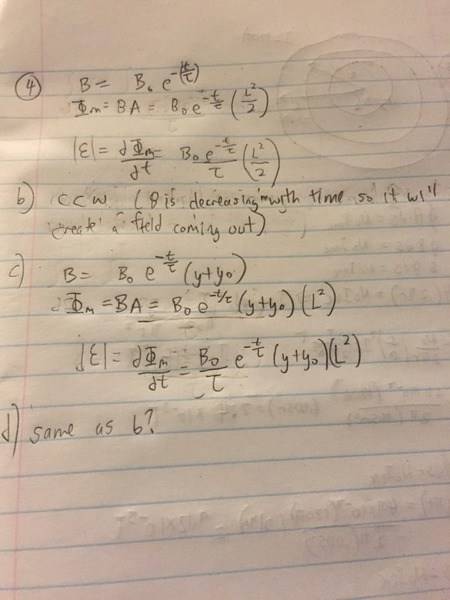 ④ B = B₀ e^-(t/τ)
Φm = BA = B₀ e^-t/τ (L²/2)
|ε| = dΦm/dt = B₀ e^-t/τ / τ (L²/2)
b) CCW. (B is decreasing with time so it will
create a field coming out)
c) B = B₀ e^-t/τ (y+y₀)
dΦm = BA = B₀ e^-t/τ (y+y₀) (L²)
|ε| = dΦm/dt = B₀/τ e^-t/τ (y+y₀)(L²)
d) same as b?